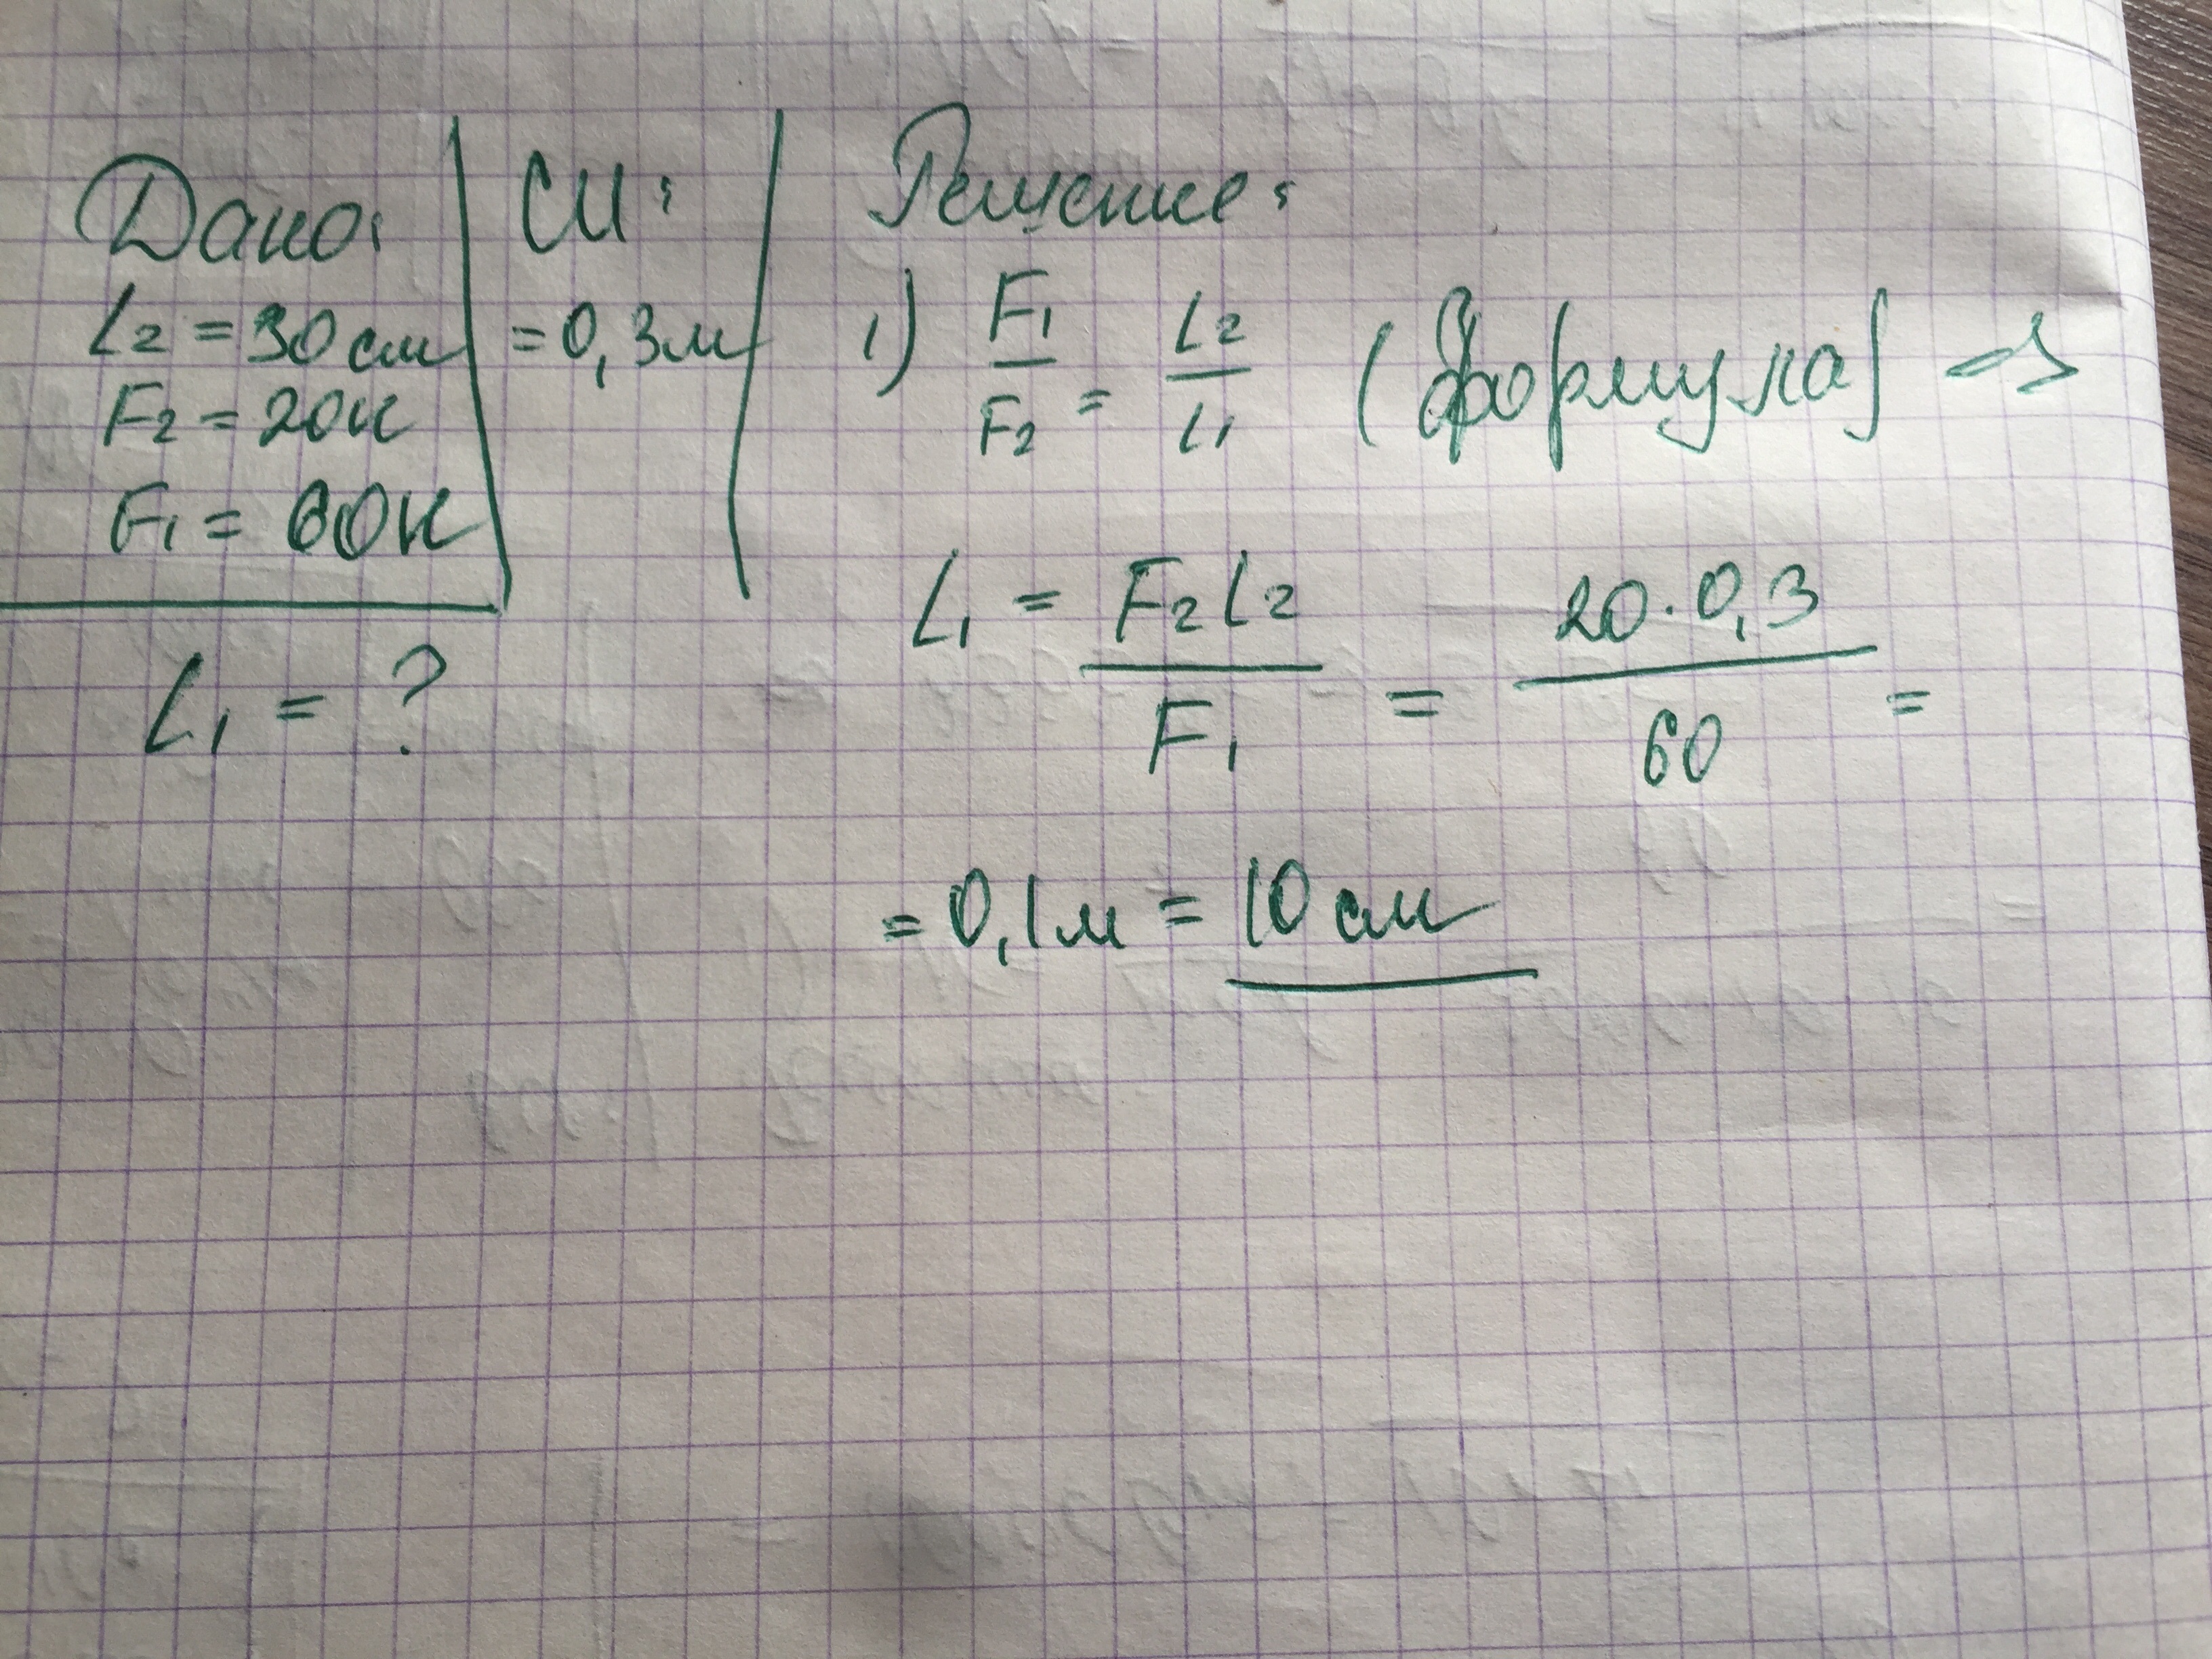 Дано:
L2 = 30 см
F2 = 20н
F1 = 60н
L1 = ?
СИ:
= 0,3м
Решение:
1) F1/F2 = L2/L1 (формула) =>
L1 = F2L2/F1 = 20·0,3/60 =
= 0,1м = 10 см